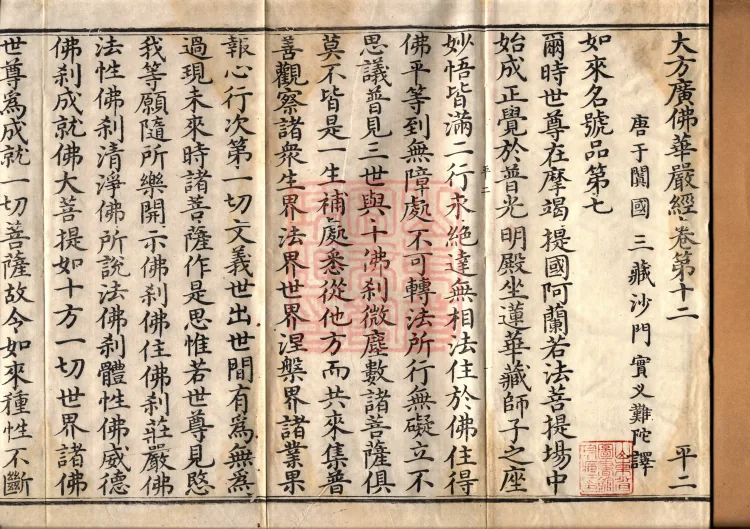 大方廣佛華嚴經卷第十二
平二
唐于闐國三藏沙門實叉難陀譯
如來名號品第七
爾時世尊在摩竭提國阿蘭若法菩提場中
始成正覺於普光明殿坐蓮華藏師子之座
平二
妙悟皆滿二行永絶達無相法住於佛住得
佛平等到無障處不可轉法所行無礙立不
思議普見三世與十佛剎微塵數諸菩薩俱
莫不皆是一生補處悉從他方而共來集普
善觀察諸衆生界法界世界涅槃界諸業果
報心行次第一切文義世出世間有爲無爲
過現未來時諸菩薩作是思惟若世尊見愍
我等願隨所樂開示佛剎佛住佛剎莊嚴佛
法性佛剎清淨佛所說法佛剎體性佛威德
佛剎成就佛大菩提如十方一切世界諸佛
世尊爲成就一切菩薩故令如來種性不斷